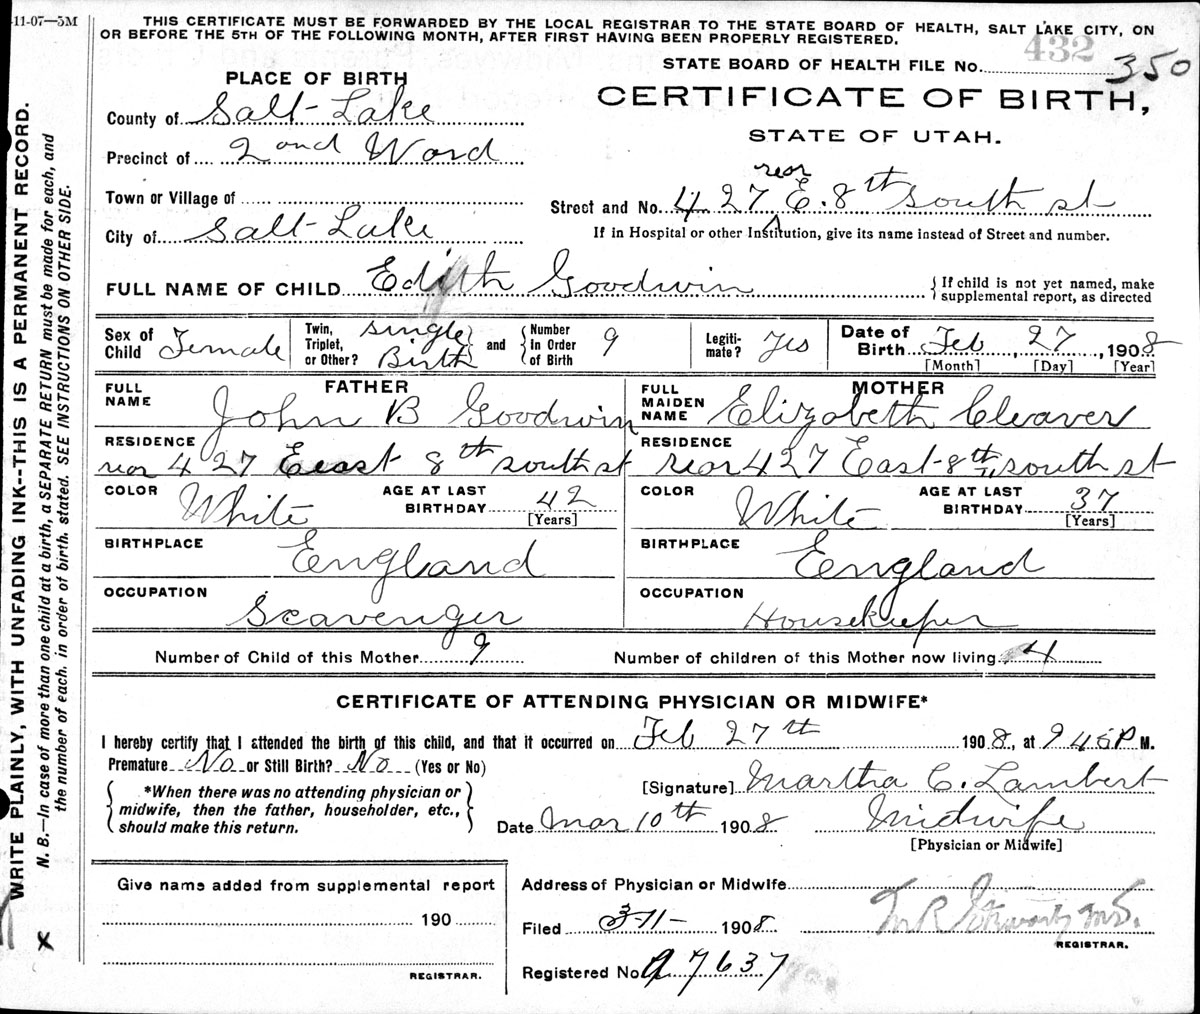 11-07—3M
THIS CERTIFICATE MUST BE FORWARDED BY THE LOCAL REGISTRAR TO THE STATE BOARD OF HEALTH, SALT LAKE CITY, ON
OR BEFORE THE 5TH OF THE FOLLOWING MONTH, AFTER FIRST HAVING BEEN PROPERLY REGISTERED.
432
STATE BOARD OF HEALTH FILE No. 350
PLACE OF BIRTH
CERTIFICATE OF BIRTH,
STATE OF UTAH.
County of Salt-Lake
Precinct of 2ond Ward
Town or Village of
City of Salt-Lake
rear
Street and No. 427 E. 8th South st
If in Hospital or other Institution, give its name instead of Street and number.
FULL NAME OF CHILD Edith Goodwin
If child is not yet named, make
supplemental report, as directed
Sex of Child Female
Twin, Triplet, or Other? single Birth
and Number In Order of Birth 9
Legitimate? Yes
Date of Birth Feb, 27, 1908
[Month] [Day] [Year]
FATHER
FULL NAME John B Goodwin
MOTHER
FULL MAIDEN NAME Elizabeth Cleaver
RESIDENCE rear 427 East 8th south st
RESIDENCE rear 427 East-8th south st
COLOR White AGE AT LAST BIRTHDAY 42 [Years]
COLOR White AGE AT LAST BIRTHDAY 37 [Years]
BIRTHPLACE England
BIRTHPLACE England
OCCUPATION Scavenger
OCCUPATION Housekeeper
Number of Child of this Mother 9
Number of children of this Mother now living 4
CERTIFICATE OF ATTENDING PHYSICIAN OR MIDWIFE*
I hereby certify that I attended the birth of this child, and that it occurred on Feb 27th 1908, at 9 45 P M.
Premature No or Still Birth? No (Yes or No)
*When there was no attending physician or
midwife, then the father, householder, etc.,
should make this return.
[Signature] Martha C. Lambert
Date Mar 10th 1908 Midwife
[Physician or Midwife]
Give name added from supplemental report
190
REGISTRAR.
Address of Physician or Midwife
Filed 3-11- 1908
REGISTRAR.
Registered No. 97637
WRITE PLAINLY, WITH UNFADING INK--THIS IS A PERMANENT RECORD.
N. B.—In case of more than one child at a birth, a SEPARATE RETURN must be made for each, and
the number of each, in order of birth, stated. SEE INSTRUCTIONS ON OTHER SIDE.
X